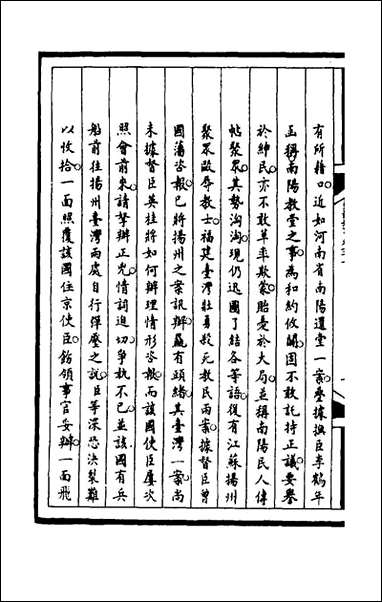 有所藉口近如河南省南陽還堂一案疊據撫臣李鶴年
函稱南陽教堂之事為和約攸關固不敢託持正議要譽
於紳民亦不敢草率欺蒙貽憂於大局並稱南陽民人傳
帖聚眾其勢洶洶現仍迅圖了結各等語復有江蘇揚州
聚眾毆辱教士福建臺灣壯勇毆死教民兩案據督臣曾
國藩咨報已將揚州之案訊辦屬有頭緒其臺灣一案尚
未據督臣英桂將如何辦理情形咨報而該國使臣屢次
照會前來請拏辦正兇情詞迫切爭執不已並該國有兵
船前往揚州臺灣兩處自行彈壓之說臣等深恐決裂難
以收拾一面照覆該國住京使臣飭領事官妥辦一面飛